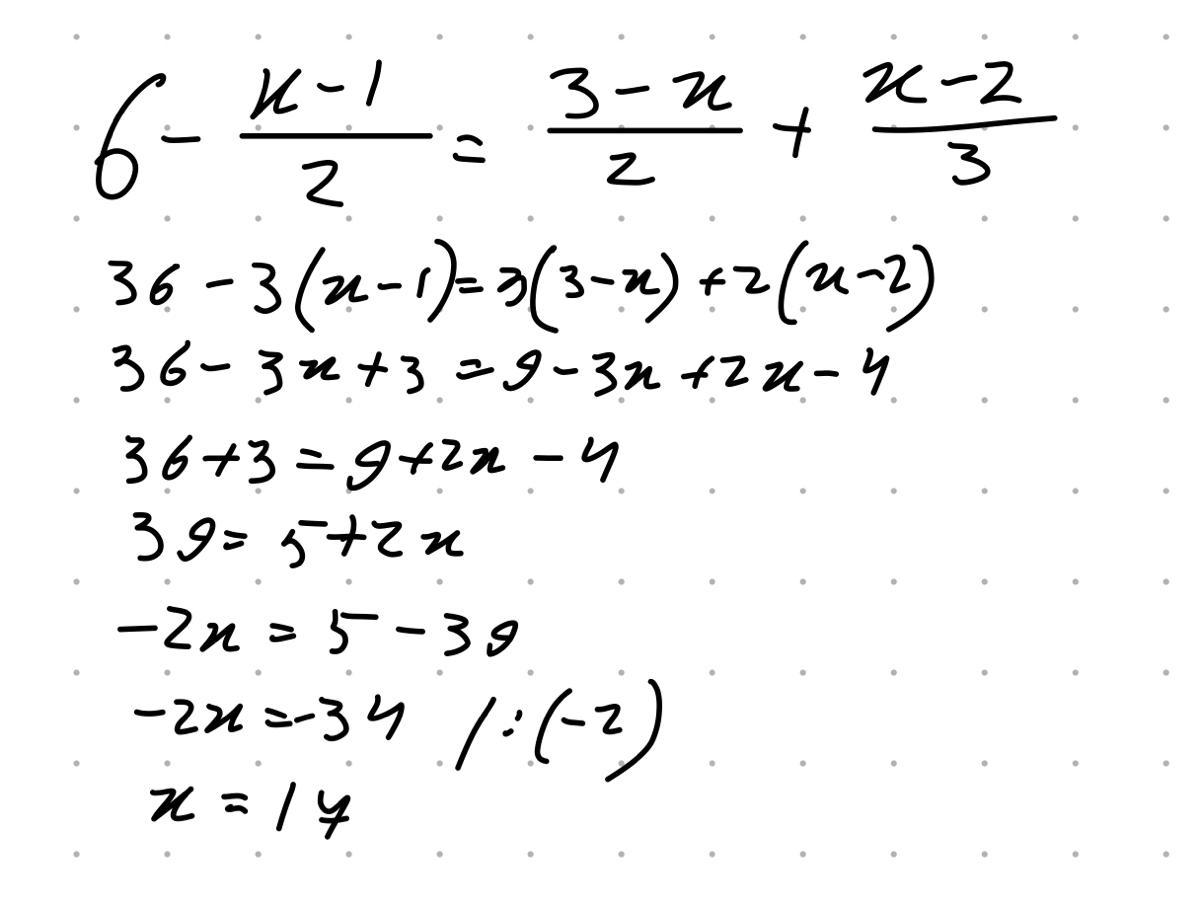 6 - (x-1)/2 = (3-x)/2 + (x-2)/3
36 - 3(x-1) = 3(3-x) + 2(x-2)
36 - 3x + 3 = 9 - 3x + 2x - 4
36 + 3 = 9 + 2x - 4
39 = 5 + 2x
-2x = 5 - 39
-2x = -34 /:(-2)
x = 17